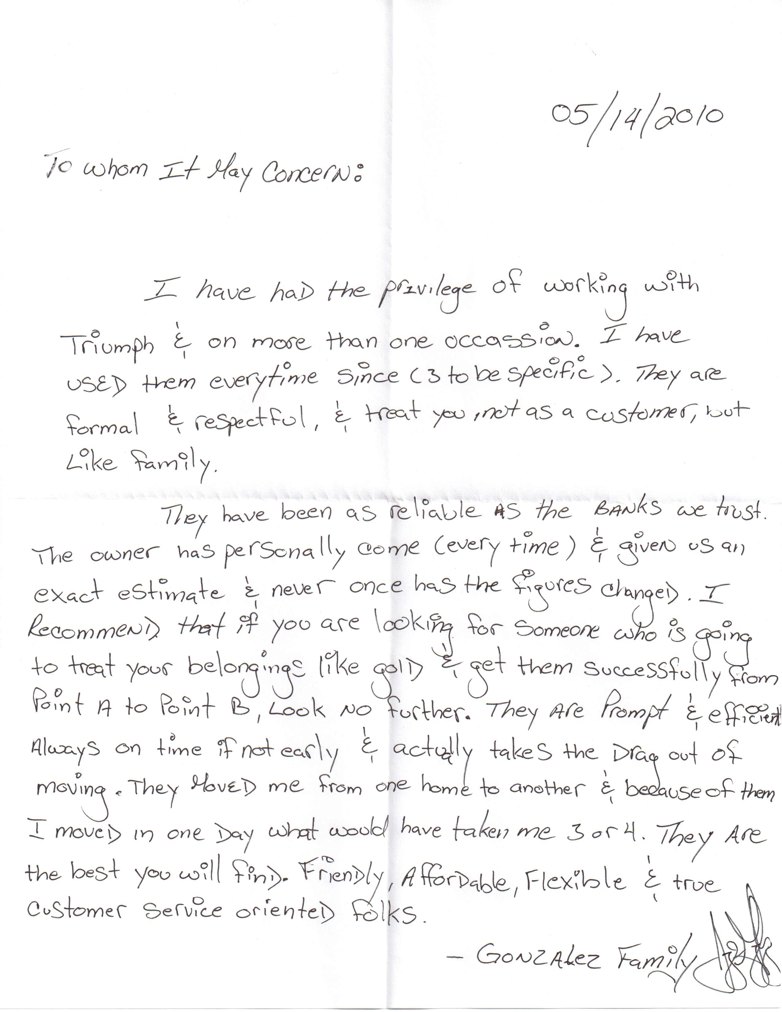 05/14/2010
To Whom It May Concern:
I have had the privilege of working with
Triumph & on more than one occassion. I have
used them everytime since (3 to be specific). They are
formal & respectful, & treat you, not as a customer, but
like family.
They have been as reliable as the banks we trust.
The owner has personally come (every time) & given us an
exact estimate & never once has the figures changed. I
recommend that if you are looking for someone who is going
to treat your belongings like gold & get them successfully from
Point A to Point B, look no further. They are prompt & efficient
Always on time if not early & actually takes the drag out of
moving. They moved me from one home to another & because of them
I moved in one day what would have taken me 3 or 4. They are
the best you will find. Friendly, Affordable, Flexible & true
customer service oriented folks.
- Gonzalez Family